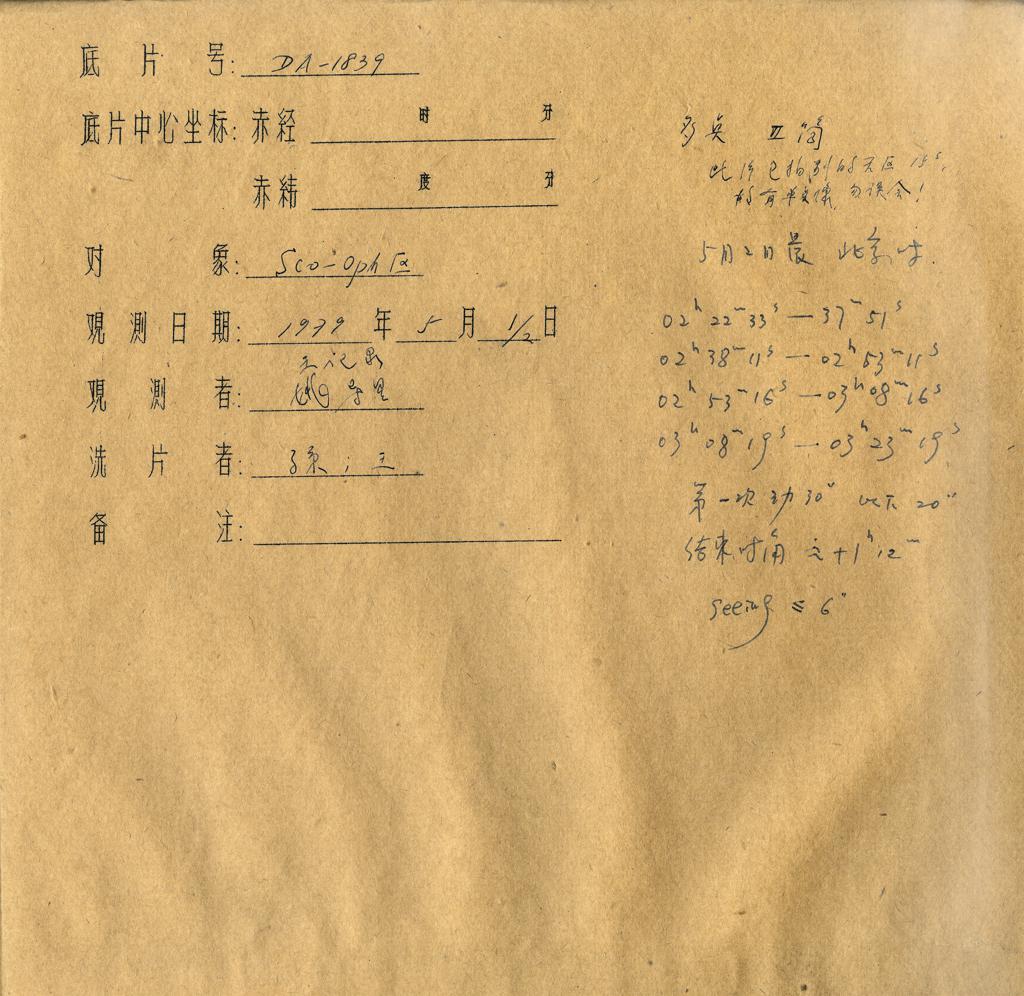 底片号: DA-1839
底片中心坐标: 赤经 时 分
赤纬 度 分
对象: Sco-Oph区
观测日期: 1979年5月1/2日
观测者:
洗片者: 孙; 王
备注:
此片已拍到的天区 15s,
的有单文像, 勿误会!
5月2日晨 北京时.
02h 22m 33s — 37m 51s
02h 38m 11s — 02h 53m 11s
02h 53m 16s — 03h 08m 16s
03h 08m 19s — 03h 23m 19s
第一次动 30" 以下 20"
结束时角 +1h 12m
seeing ≤ 6"